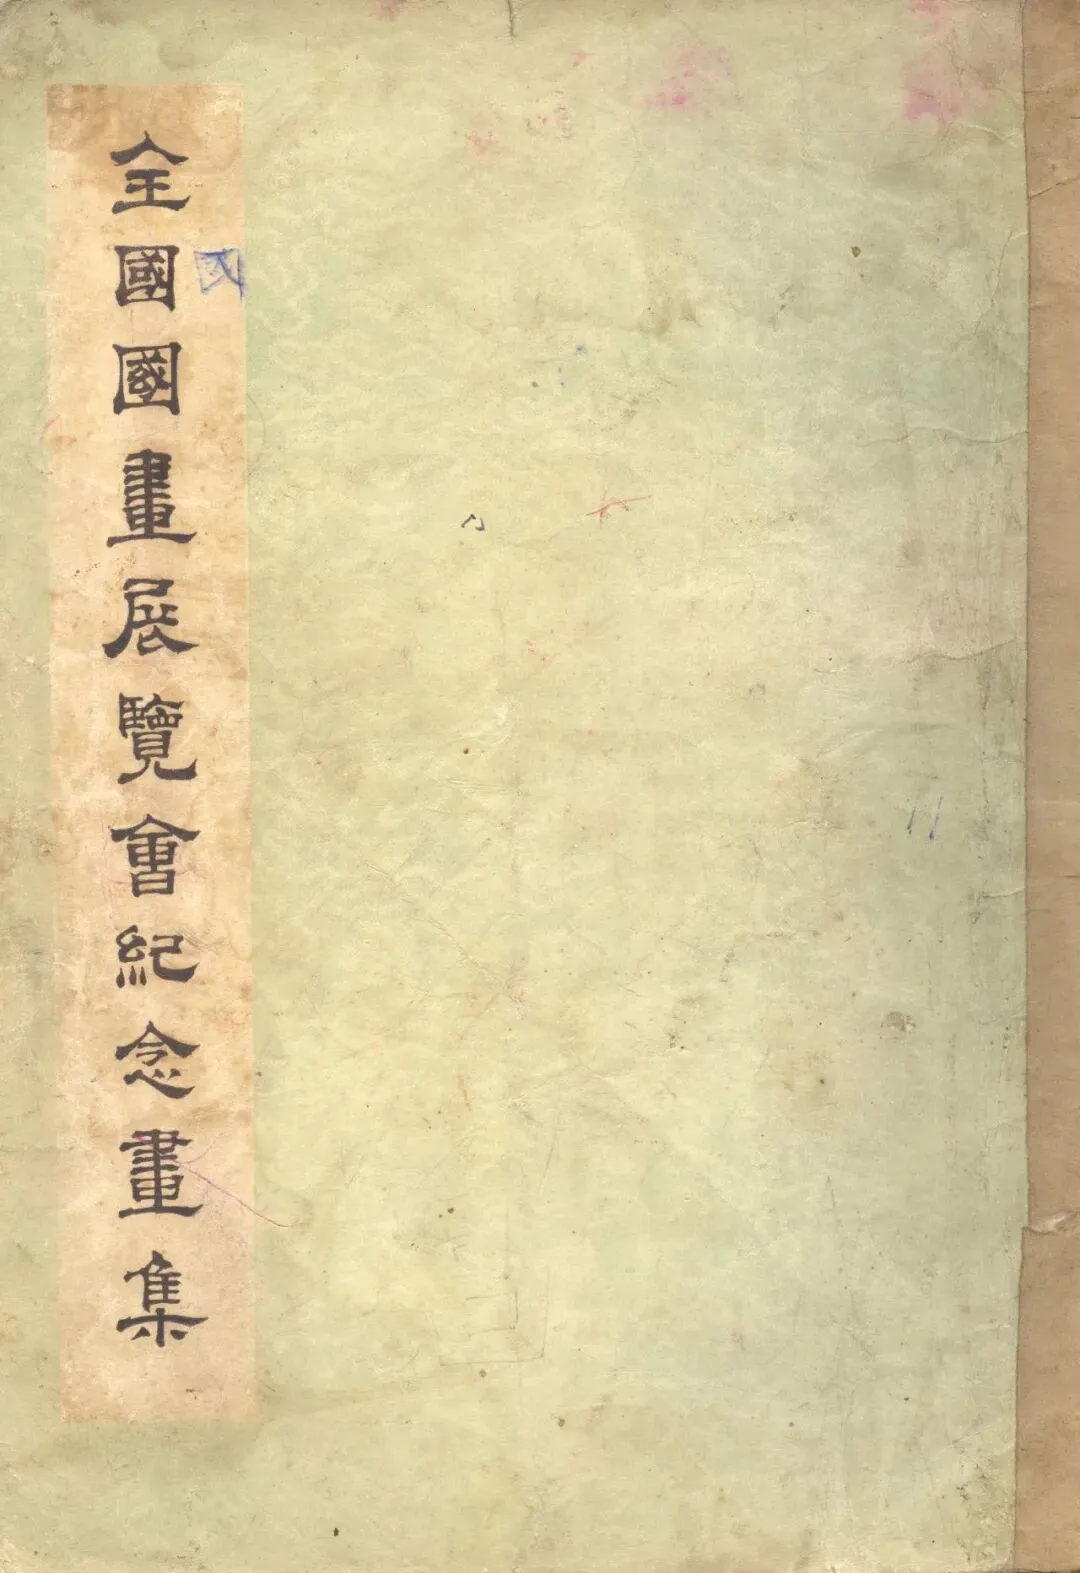 全國國畫展覽會紀念畫集